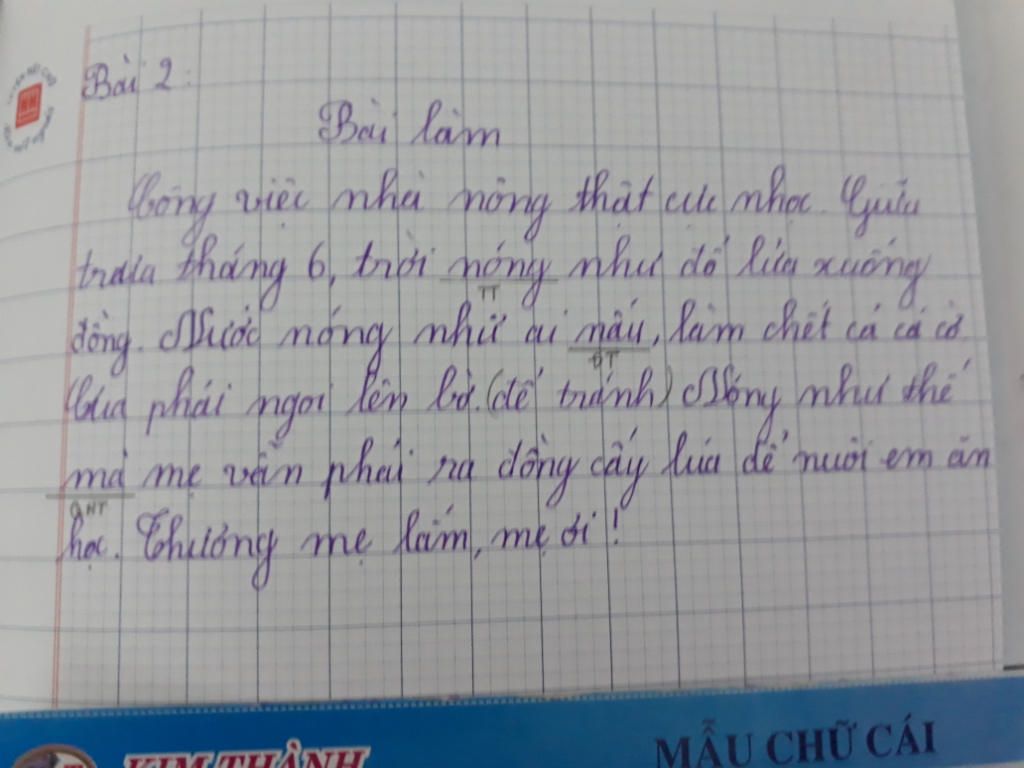 Bài 2:
Bài làm
Công việc nhà nông thật cực nhọc. Giữa
trưa tháng 6, trời nóng như đổ lửa xuống
TT
đồng. Nước nóng như ai nấu, làm chết cả cá cờ.
ĐT
Cua phải ngoi lên bờ. (để tránh) Nóng như thế
mà mẹ vẫn phải ra đồng cấy lúa để nuôi em ăn
QHT
học. Thương mẹ lắm, mẹ ơi!
KIM THÀNH
MẪU CHỮ CÁI